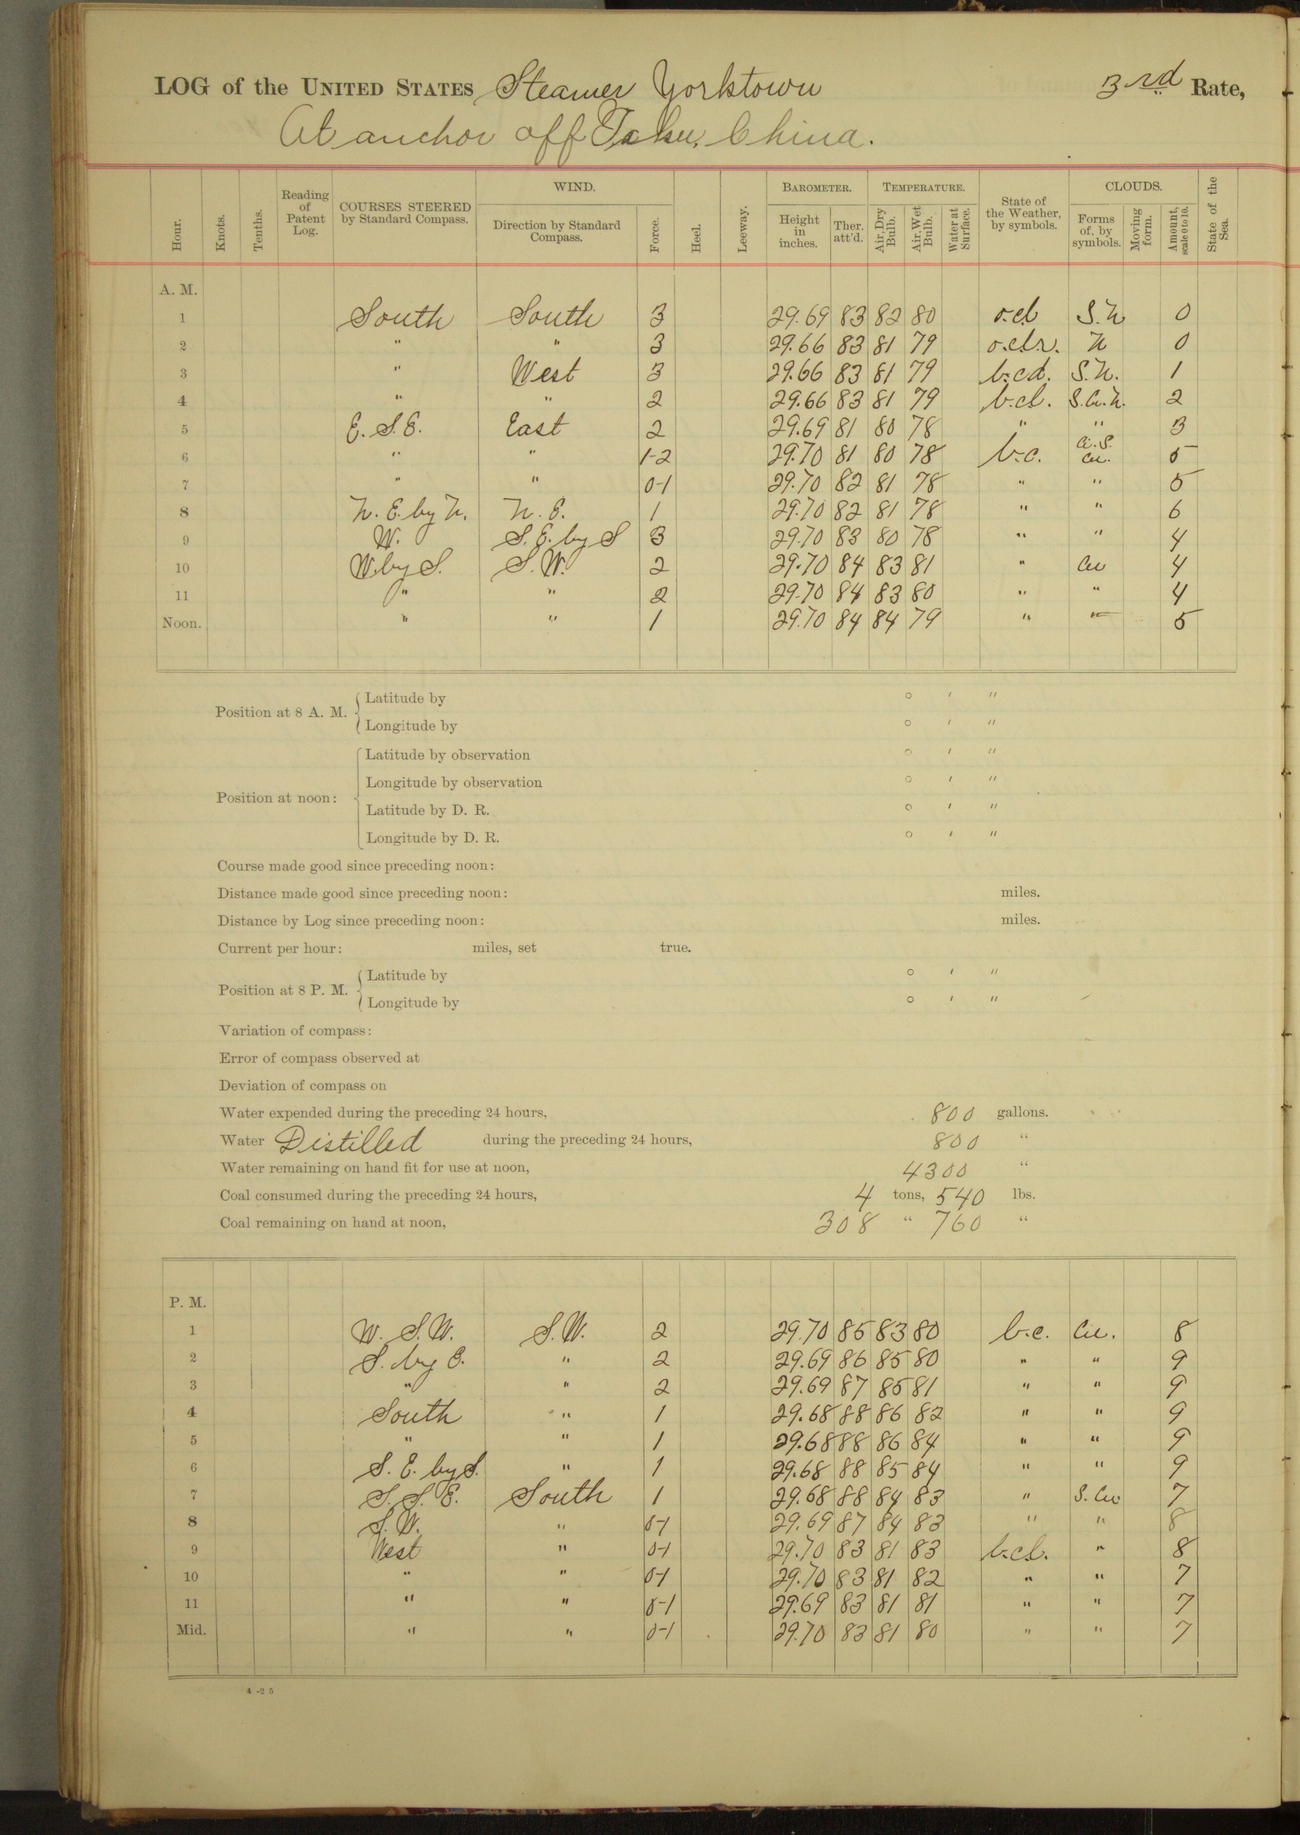 LOG of the UNITED STATES Steamer Yorktown 3rd Rate,
At anchor off Taku, China.
Hour. Knots. Tenths. Reading of Patent Log. COURSES STEERED by Standard Compass. WIND. Direction by Standard Compass. Force. Heel. Leeway. BAROMETER. Height in inches. Ther. att'd. TEMPERATURE. Air, Dry Bulb. Air, Wet Bulb. Water at Surface. State of the Weather, by symbols. CLOUDS. Forms of, by symbols. Moving form. Amount, scale 0 to 10. State of the Sea.
A. M.
1 South South 3 29.69 83 82 80 o.c.l. S.N 0
2 " " 3 29.66 83 81 79 o.c.l.r. N 0
3 " West 3 29.66 83 81 79 b.c.d. S.N. 1
4 " " 2 29.66 83 81 79 b.c.l. S.Cu.N. 2
5 E. S.E. East 2 29.69 81 80 78 " " 3
6 " " 1-2 29.70 81 80 78 b.c. Ci.S. Cu. 5
7 " " 0-1 29.70 82 81 78 " " 5
8 N. E. by N. N. E. 1 29.70 82 81 78 " " 6
9 W. S.E. by S 3 29.70 83 80 78 " " 4
10 W. by S. S.W. 2 29.70 84 83 81 " Cu 4
11 " " 2 29.70 84 83 80 " " 4
Noon. " " 1 29.70 84 84 79 " " 5
Position at 8 A. M. Latitude by ° ′ ″
Longitude by ° ′ ″
Position at noon: Latitude by observation ° ′ ″
Longitude by observation ° ′ ″
Latitude by D. R. ° ′ ″
Longitude by D. R. ° ′ ″
Course made good since preceding noon:
Distance made good since preceding noon: miles.
Distance by Log since preceding noon: miles.
Current per hour: miles, set true.
Position at 8 P. M. Latitude by ° ′ ″
Longitude by ° ′ ″
Variation of compass:
Error of compass observed at
Deviation of compass on
Water expended during the preceding 24 hours, 800 gallons.
Water Distilled during the preceding 24 hours, 800 "
Water remaining on hand fit for use at noon, 4300 "
Coal consumed during the preceding 24 hours, 4 tons, 540 lbs.
Coal remaining on hand at noon, 308 " 760 "
P. M.
1 W. S.W. S.W. 2 29.70 85 83 80 b.c. Cu. 8
2 S. by E. " 2 29.69 86 85 80 " " 9
3 " " 2 29.69 87 85 81 " " 9
4 South " 1 29.68 88 86 82 " " 9
5 " " 1 29.68 88 86 84 " " 9
6 S. E. by S. " 1 29.68 88 85 84 " " 9
7 S. S. E. South 1 29.68 88 84 83 " S. Cu 7
8 S.W. " 0-1 29.69 87 84 83 " " 8
9 West " 0-1 29.70 83 81 83 b.c.l. " 8
10 " " 0-1 29.70 83 81 82 " " 7
11 " " 0-1 29.69 83 81 81 " " 7
Mid. " " 0-1 29.70 83 81 80 " " 7
4-25